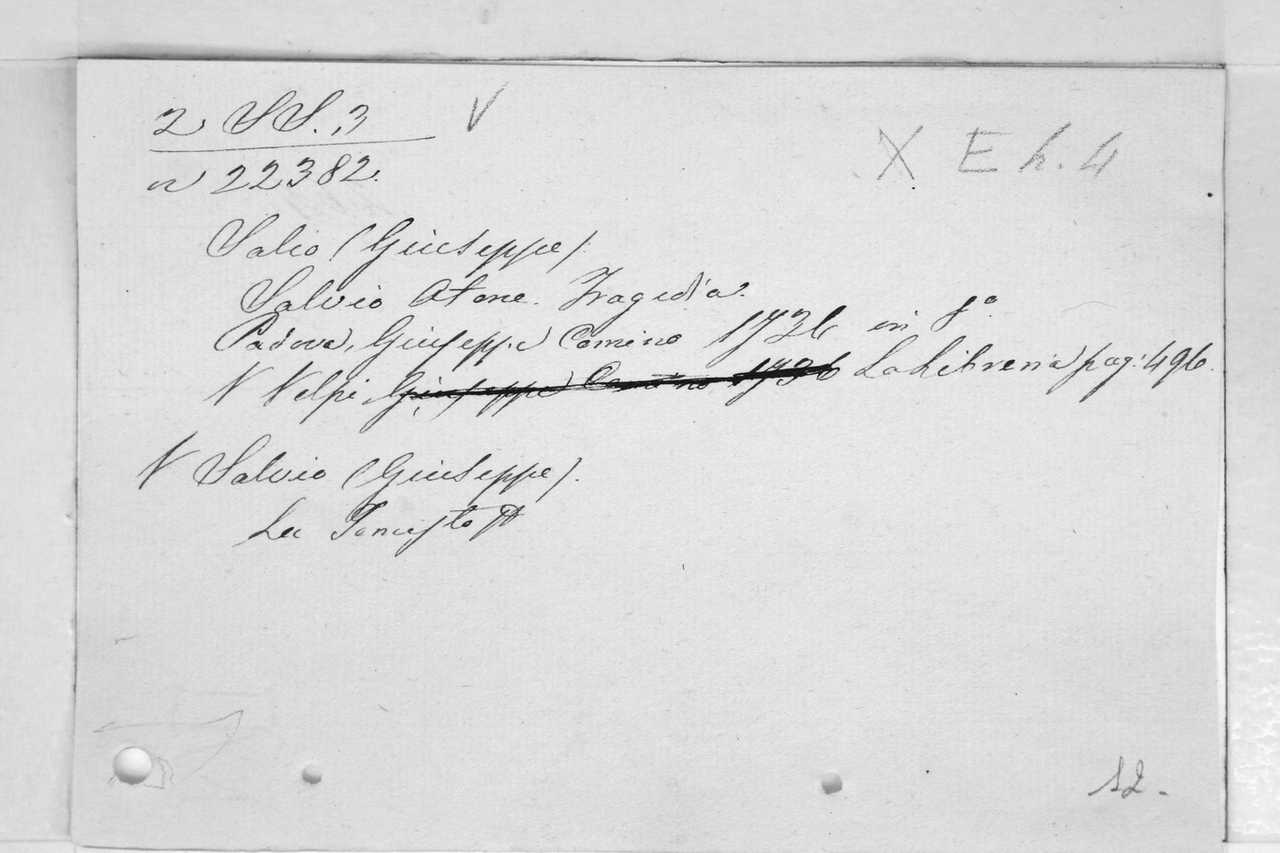 2 SS. 3 V
n 22382.
X E h. 4
Salio (Giuseppe).
Salvio Otone. Tragedia.
Padova, Giuseppe Comino 1736 in 8°
V Volpi Giuseppe Comino 1736 La Libreria pag: 496.
V Salvio (Giuseppe).
La
12.